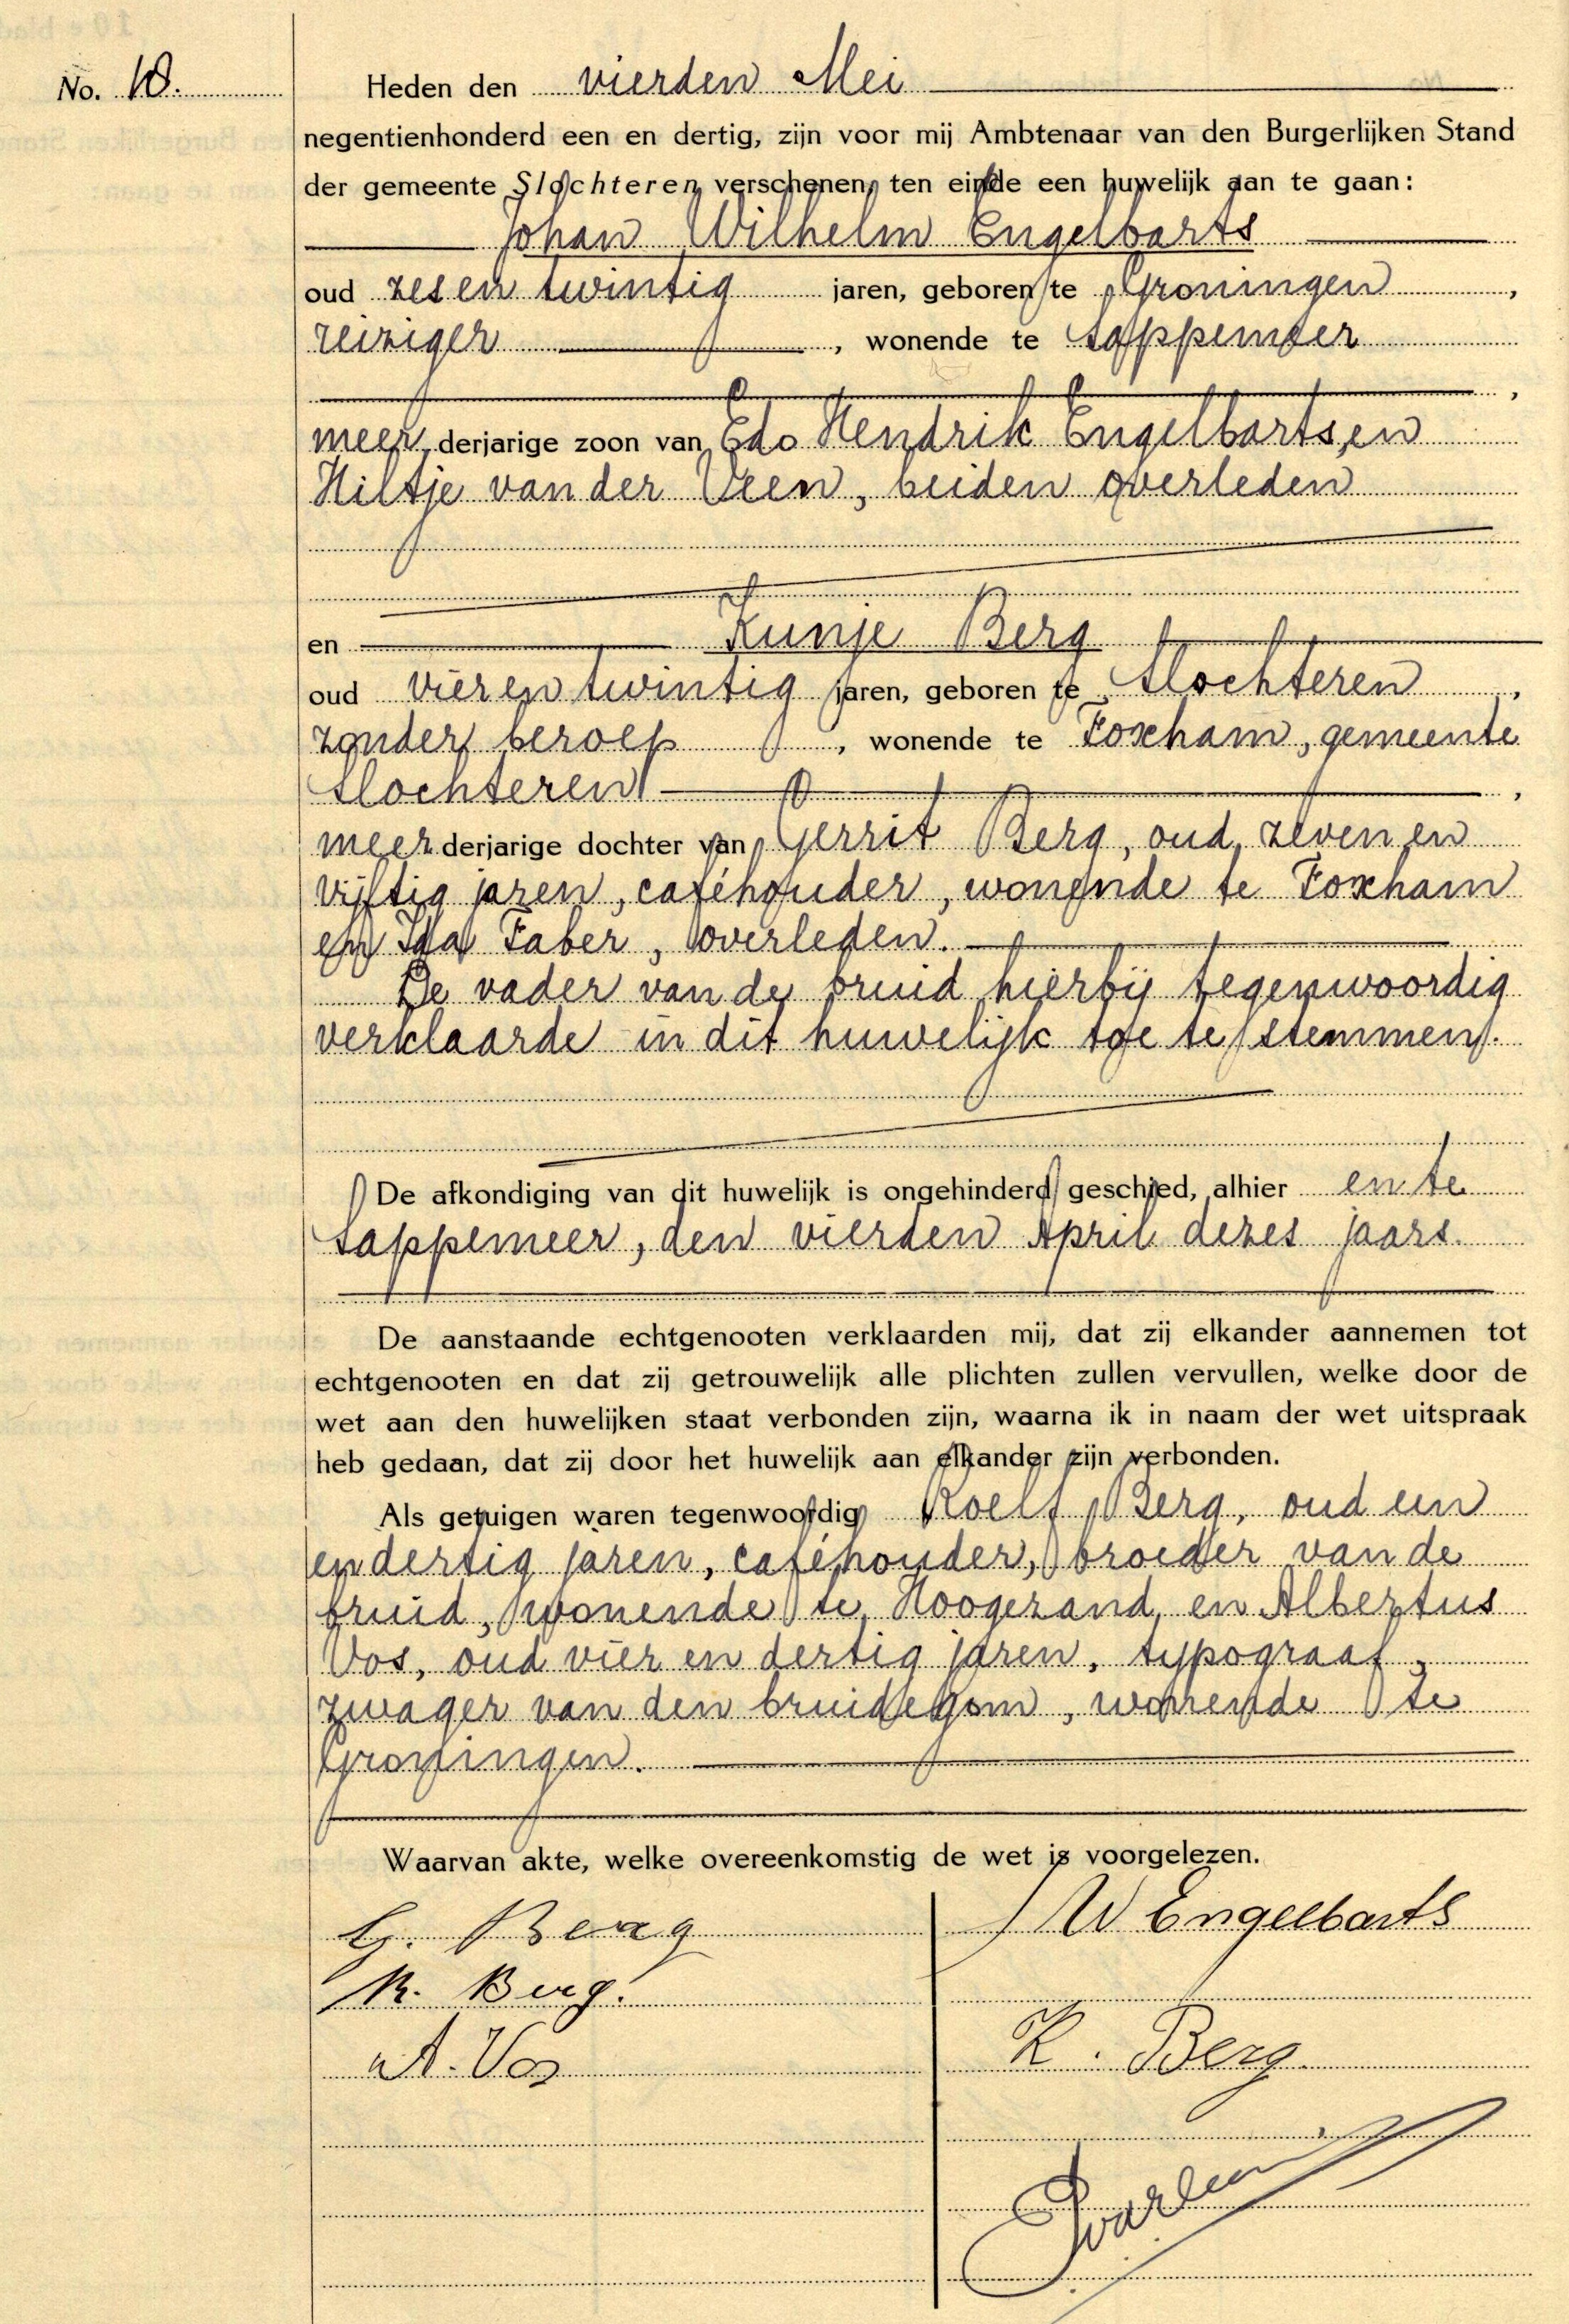 No. 18.
Heden den vierden Mei
negentienhonderd een en dertig, zijn voor mij Ambtenaar van den Burgerlijken Stand
der gemeente Slochteren verschenen, ten einde een huwelijk aan te gaan:
Johan Wilhelm Engelbarts
oud zes en twintig jaren, geboren te Groningen,
reiziger, wonende te Sappemeer
,
meerderjarige zoon van Edo Hendrik Engelbarts, en
Hiltje van der Veen, beiden overleden
en Kunje Berg
oud vier en twintig jaren, geboren te Slochteren,
zonder beroep, wonende te Foxham, gemeente
Slochteren,
meerderjarige dochter van Gerrit Berg, oud zeven en
vijftig jaren, caféhouder, wonende te Foxham
en Ida Faber, overleden.
De vader van de bruid hierbij tegenwoordig
verklaarde in dit huwelijk toe te stemmen.
De afkondiging van dit huwelijk is ongehinderd geschied, alhier en te
Sappemeer, den vierden April dezes jaars.
De aanstaande echtgenooten verklaarden mij, dat zij elkander aannemen tot
echtgenooten en dat zij getrouwelijk alle plichten zullen vervullen, welke door de
wet aan den huwelijken staat verbonden zijn, waarna ik in naam der wet uitspraak
heb gedaan, dat zij door het huwelijk aan elkander zijn verbonden.
Als getuigen waren tegenwoordig Roelf Berg, oud een
en dertig jaren, caféhouder, broeder van de
bruid, wonende te Hoogezand, en Albertus
Vos, oud vier en dertig jaren, typograaf,
zwager van den bruidegom, wonende te
Groningen.
Waarvan akte, welke overeenkomstig de wet is voorgelezen.
G. Berg
JW Engelbarts
R. Berg.
A. Vos
K. Berg